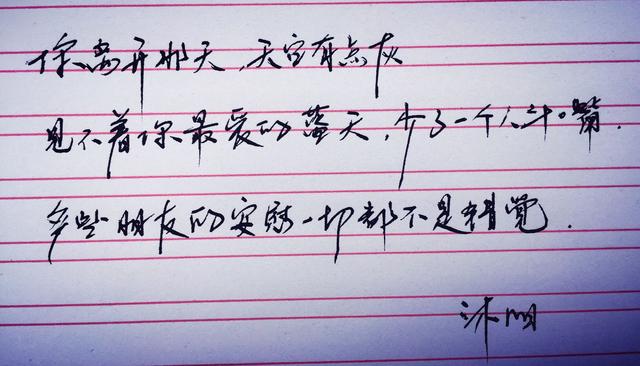 你离开那天,天空有点灰
见不着你最爱的蓝天,少了一个人斗嘴.
多些朋友的安慰一切都不是错觉.
沐阳